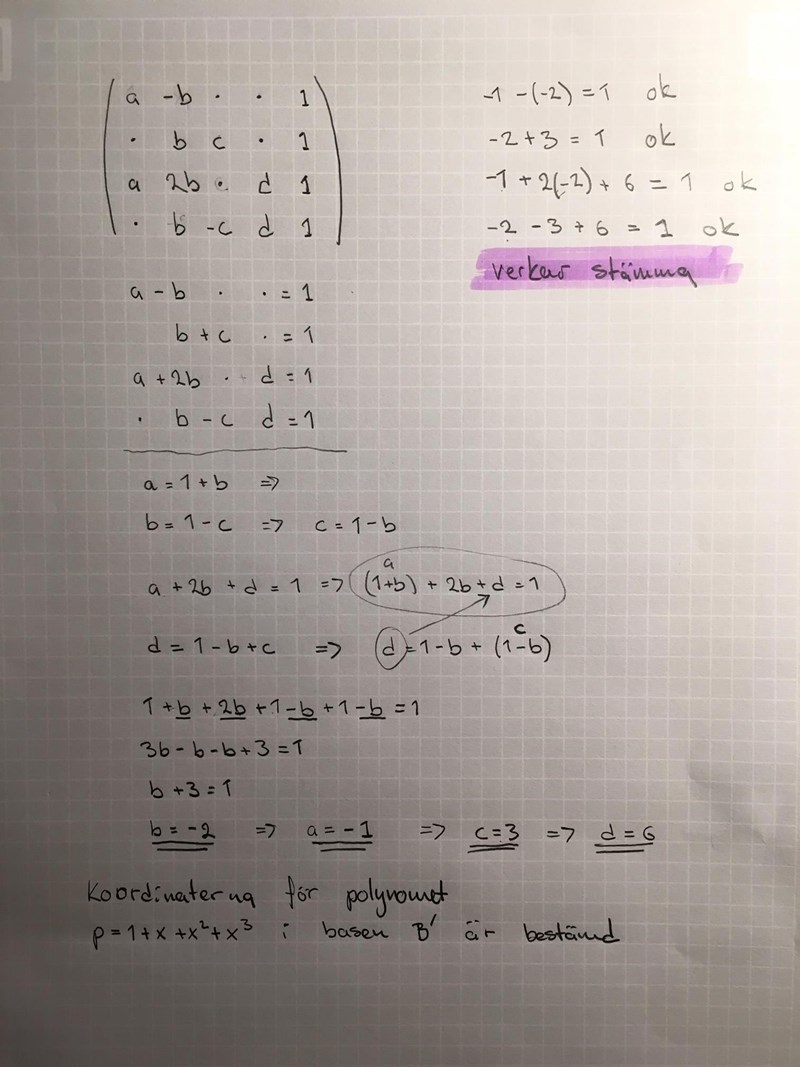 a -b · · 1
· b c · 1
a 2b · d 1
· b -c d 1
-1 -(-2) = 1 ok
-2+3 = 1 ok
-1 + 2(-2) + 6 = 1 ok
-2 -3 + 6 = 1 ok
verkar stämma
a - b · · = 1
b + c · = 1
a + 2b · d = 1
· b - c d = 1
a = 1 + b =>
b = 1 - c => c = 1 - b
a
a + 2b + d = 1 => (1+b) + 2b + d = 1
c
d = 1 - b + c => d = 1 - b + (1-b)
1 + b + 2b + 1 - b + 1 - b = 1
3b - b - b + 3 = 1
b + 3 = 1
b = -2 => a = -1 => c = 3 => d = 6
Koordinaterna för polynomet
p = 1 + x + x² + x³ i basen B' är bestämd